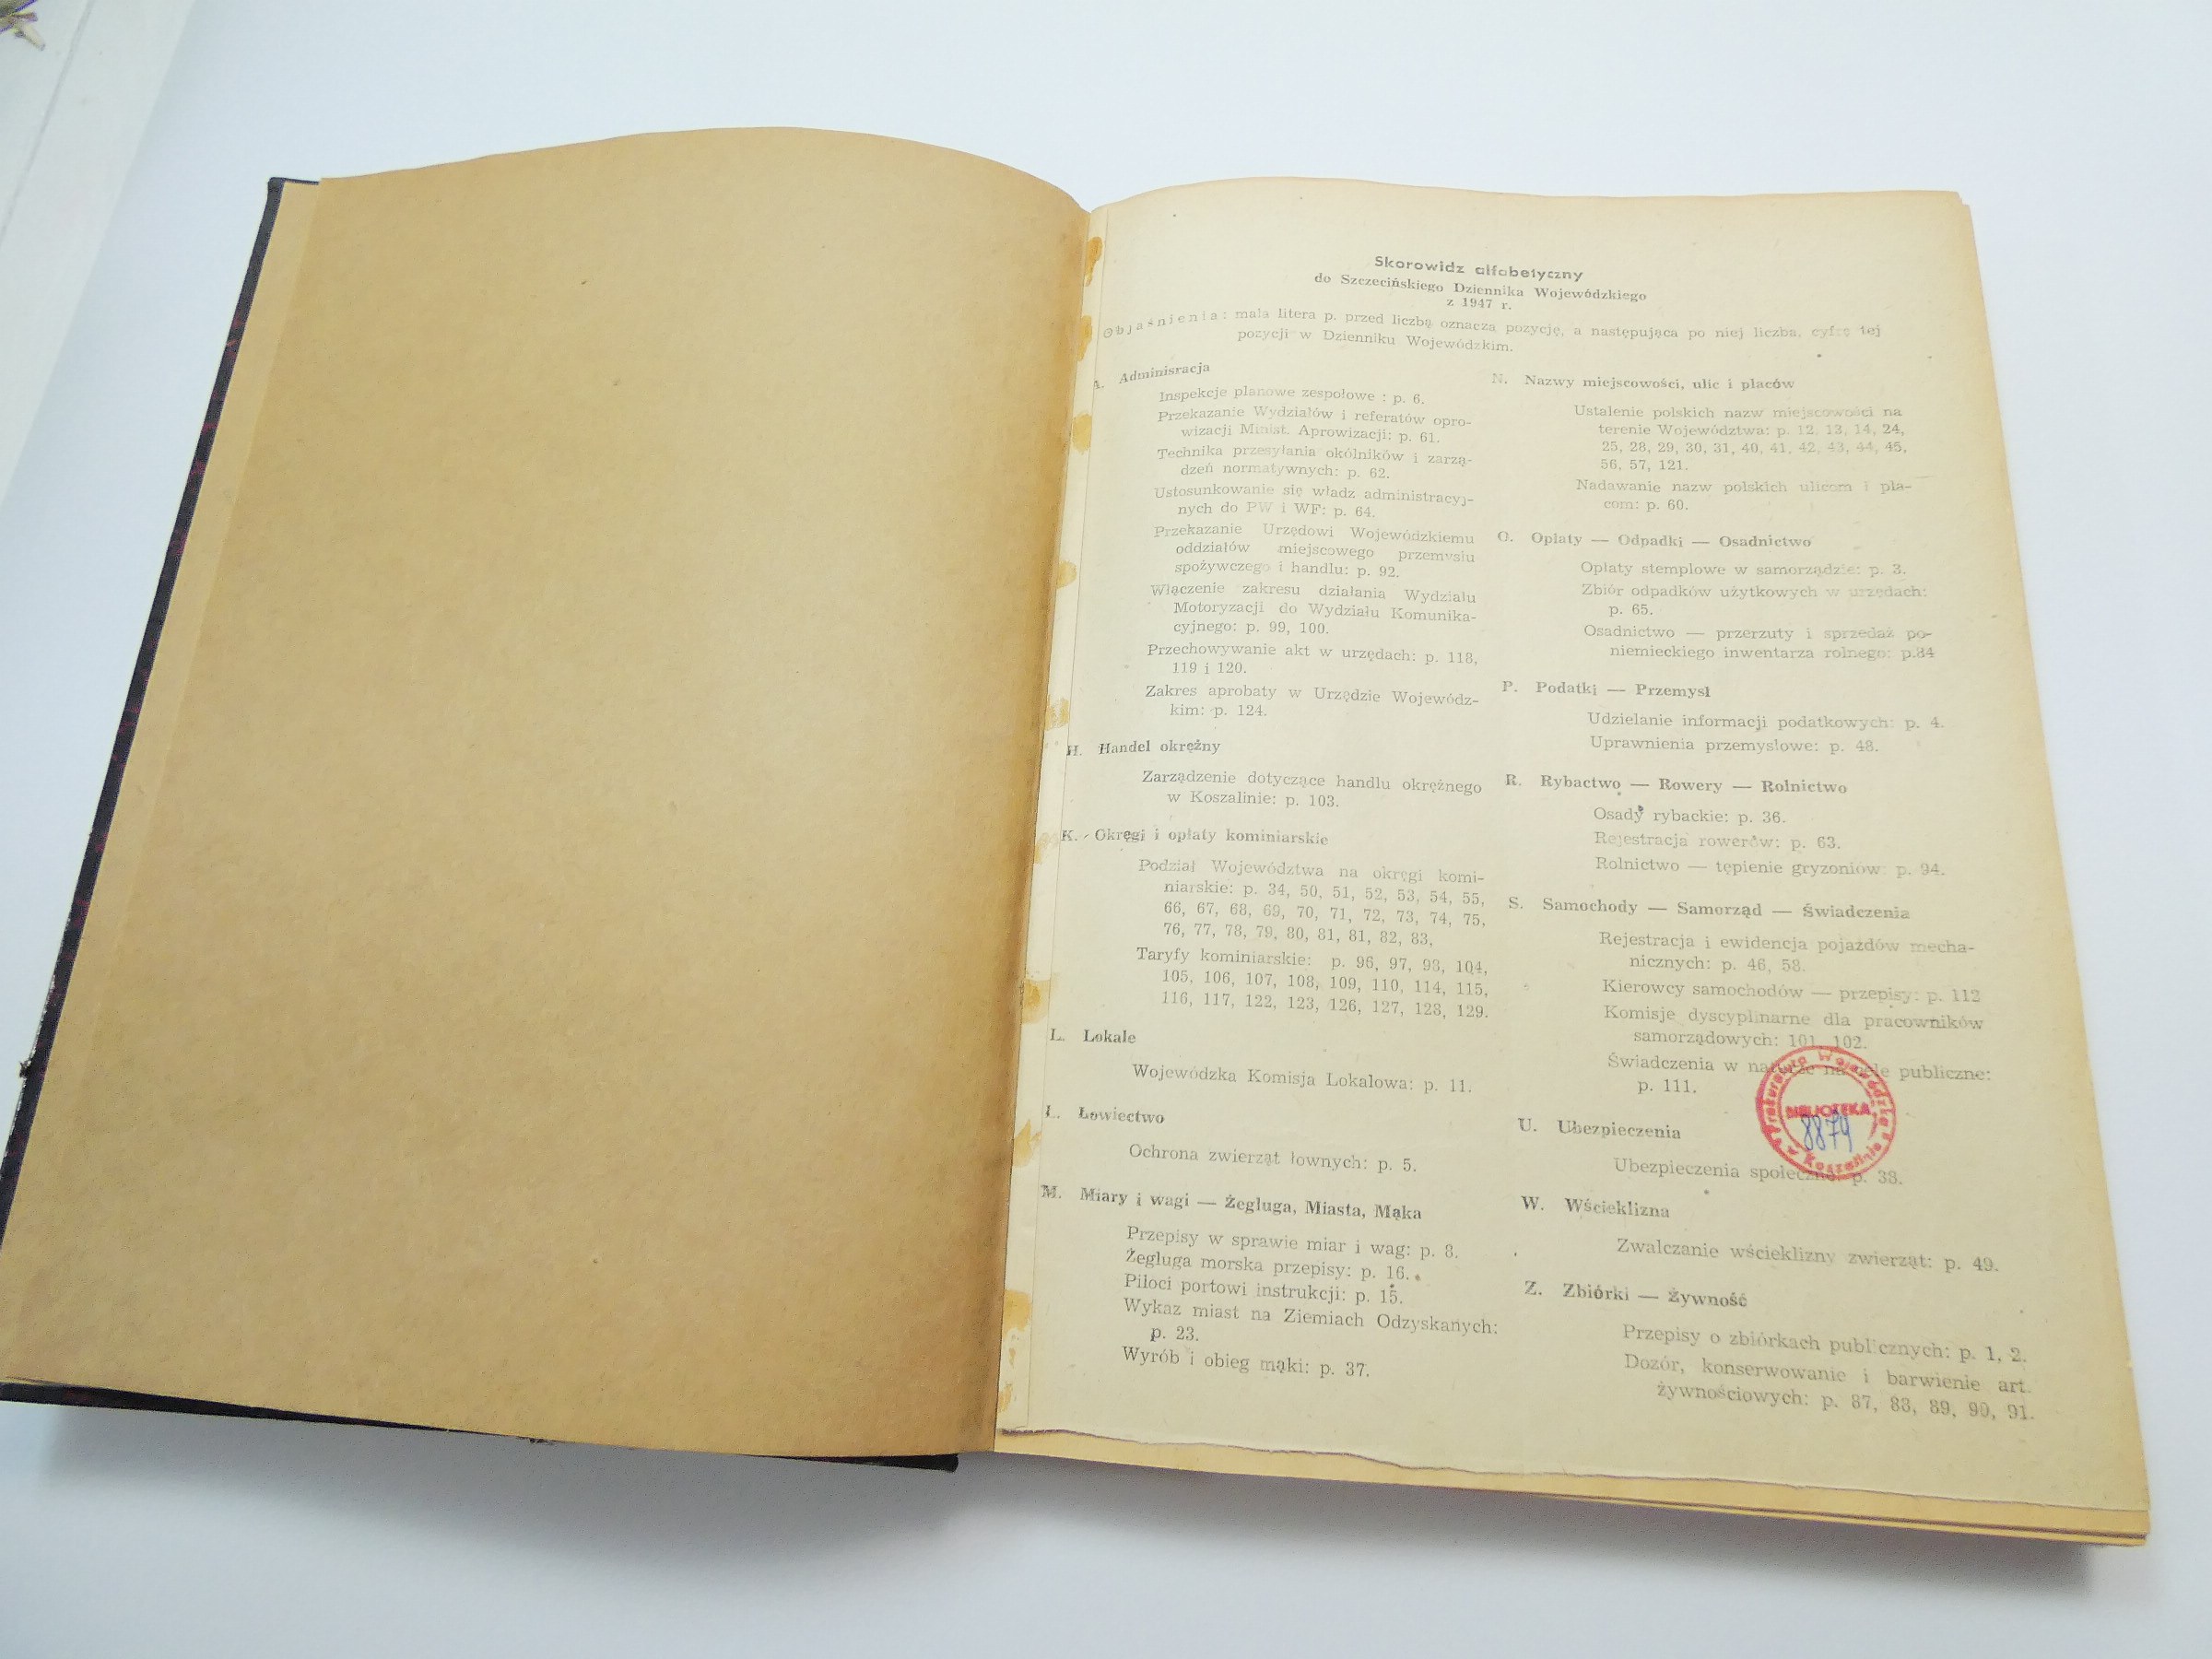 Skorowidz alfabetyczny
do Szczecińskiego Dziennika Wojewódzkiego
z 1947 r.
Objaśnienia: mała litera p. przed liczbą oznacza pozycję, a następująca po niej liczba, cyfrę tej
pozycji w Dzienniku Wojewódzkim.
A. Adminisracja
Inspekcje planowe zespołowe : p. 6.
Przekazanie Wydziałów i referatów opro-
wizacji Minist. Aprowizacji: p. 61.
Technika przesyłania okólników i zarzą-
dzeń normatywnych: p. 62.
Ustosunkowanie się władz administracyj-
nych do PW i WF: p. 64.
Przekazanie Urzędowi Wojewódzkiemu
oddziałów miejscowego przemysłu
spożywczego i handlu: p. 92.
Włączenie zakresu działania Wydziału
Motoryzacji do Wydziału Komunika-
cyjnego: p. 99, 100.
Przechowywanie akt w urzędach: p. 118,
119 i 120.
Zakres aprobaty w Urzędzie Wojewódz-
kim: p. 124.
H. Handel okrężny
Zarządzenie dotyczące handlu okrężnego
w Koszalinie: p. 103.
K. Okręgi i opłaty kominiarskie
Podział Województwa na okręgi komi-
niarskie: p. 34, 50, 51, 52, 53, 54, 55,
66, 67, 68, 69, 70, 71, 72, 73, 74, 75,
76, 77, 78, 79, 80, 81, 81, 82, 83,
Taryfy kominiarskie: p. 96, 97, 98, 104,
105, 106, 107, 108, 109, 110, 114, 115,
116, 117, 122, 123, 126, 127, 128, 129.
L. Lokale
Wojewódzka Komisja Lokalowa: p. 11.
Ł. Łowiectwo
Ochrona zwierząt łownych: p. 5.
M. Miary i wagi — Żegluga, Miasta, Mąka
Przepisy w sprawie miar i wag: p. 8.
Żegluga morska przepisy: p. 16.
Piloci portowi instrukcji: p. 15.
Wykaz miast na Ziemiach Odzyskanych:
p. 23.
Wyrób i obieg mąki: p. 37.
N. Nazwy miejscowości, ulic i placów
Ustalenie polskich nazw miejscowości na
terenie Województwa: p. 12, 13, 14, 24,
25, 28, 29, 30, 31, 40, 41, 42, 43, 44, 45,
56, 57, 121.
Nadawanie nazw polskich ulicom i pla-
com: p. 60.
O. Opłaty — Odpadki — Osadnictwo
Opłaty stemplowe w samorządzie: p. 3.
Zbiór odpadków użytkowych w urzędach:
p. 65.
Osadnictwo — przerzuty i sprzedaż po-
niemieckiego inwentarza rolnego: p.84
P. Podatki — Przemysł
Udzielanie informacji podatkowych: p. 4.
Uprawnienia przemysłowe: p. 48.
R. Rybactwo — Rowery — Rolnictwo
Osady rybackie: p. 36.
Rejestracja rowerów: p. 63.
Rolnictwo — tępienie gryzoniów: p. 94.
S. Samochody — Samorząd — Świadczenia
Rejestracja i ewidencja pojazdów mecha-
nicznych: p. 46, 58.
Kierowcy samochodów — przepisy: p. 112
Komisje dyscyplinarne dla pracowników
samorządowych: 101, 102.
Świadczenia w naturze na cele publiczne:
p. 111.
U. Ubezpieczenia
Ubezpieczenia społeczne: p. 38.
W. Wścieklizna
Zwalczanie wścieklizny zwierząt: p. 49.
Z. Zbiórki — żywność
Przepisy o zbiórkach publicznych: p. 1, 2.
Dozór, konserwowanie i barwienie art.
żywnościowych: p. 87, 88, 89, 90, 91.
Prokuratura Wojewódzka
w Koszalinie
BIBLIOTEKA
8879